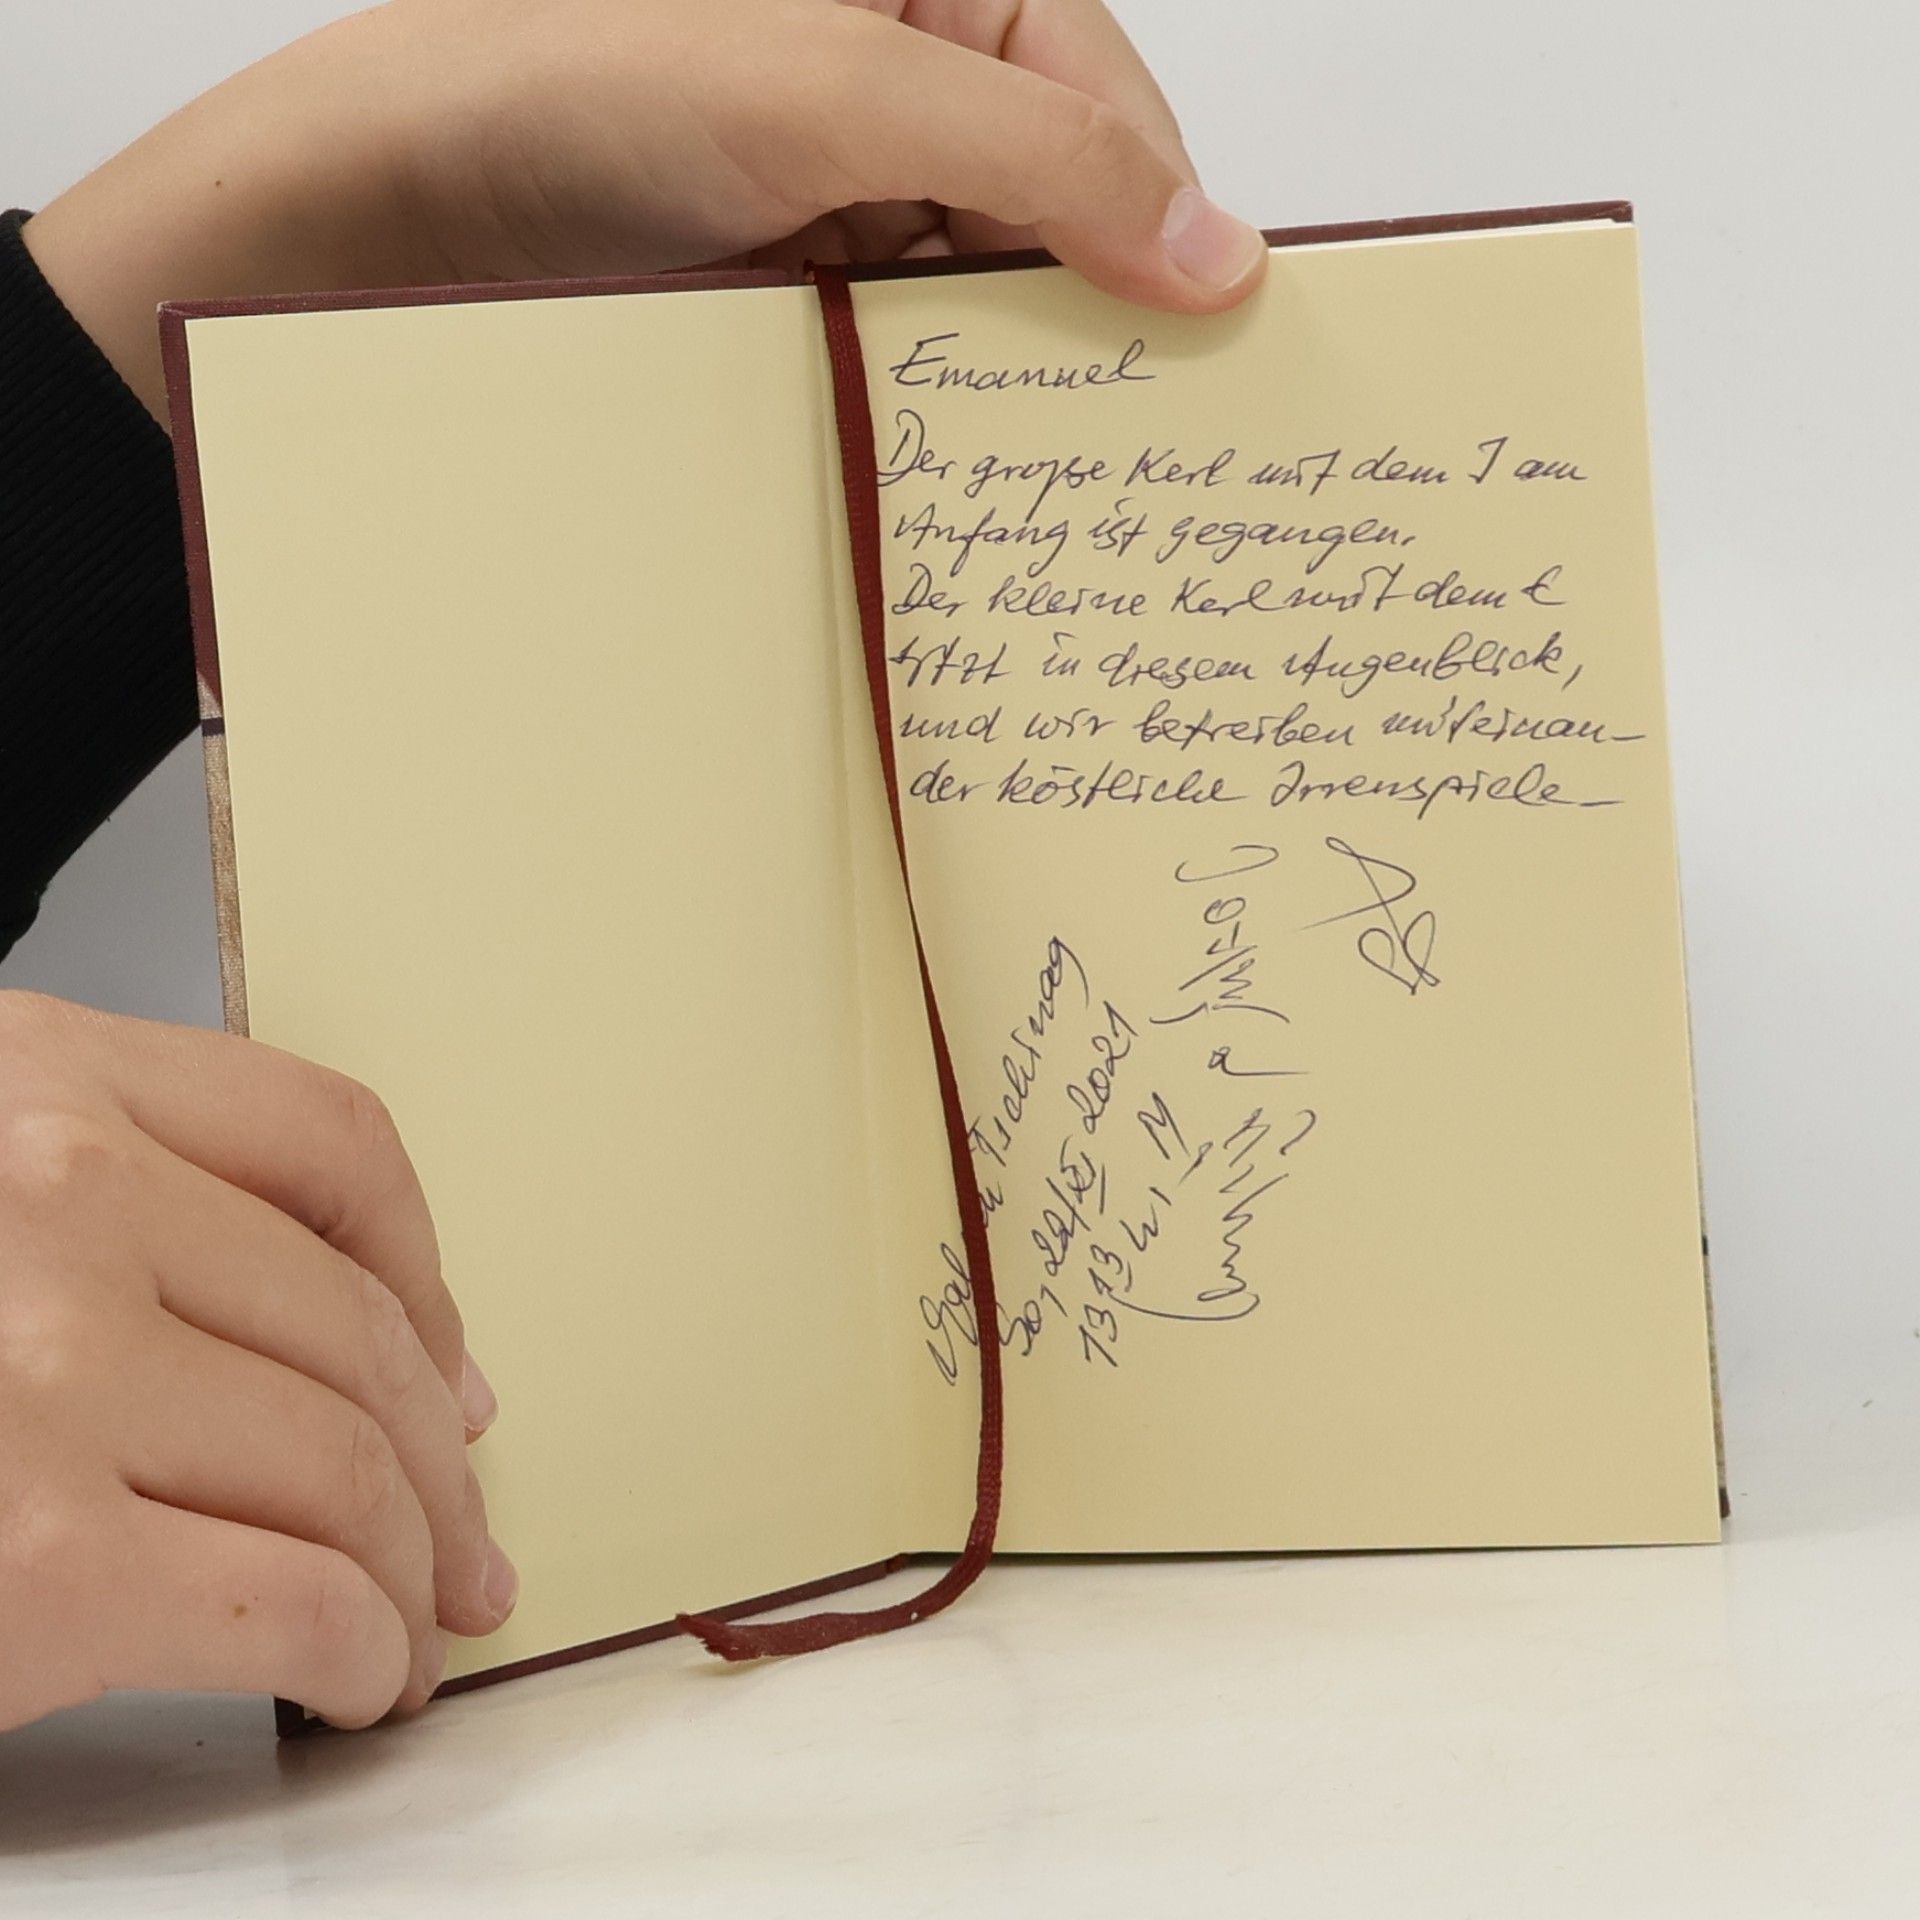 Emanuel
Der große Kerl mit dem I am
Anfang ist gegangen.
Der kleine Kerl mit dem E
sitzt in diesem Augenblick,
und wir betreiben miteinan-
der köstliche Irrenspiele –
Tschinag
So, 22/ 2021
13 13 h,